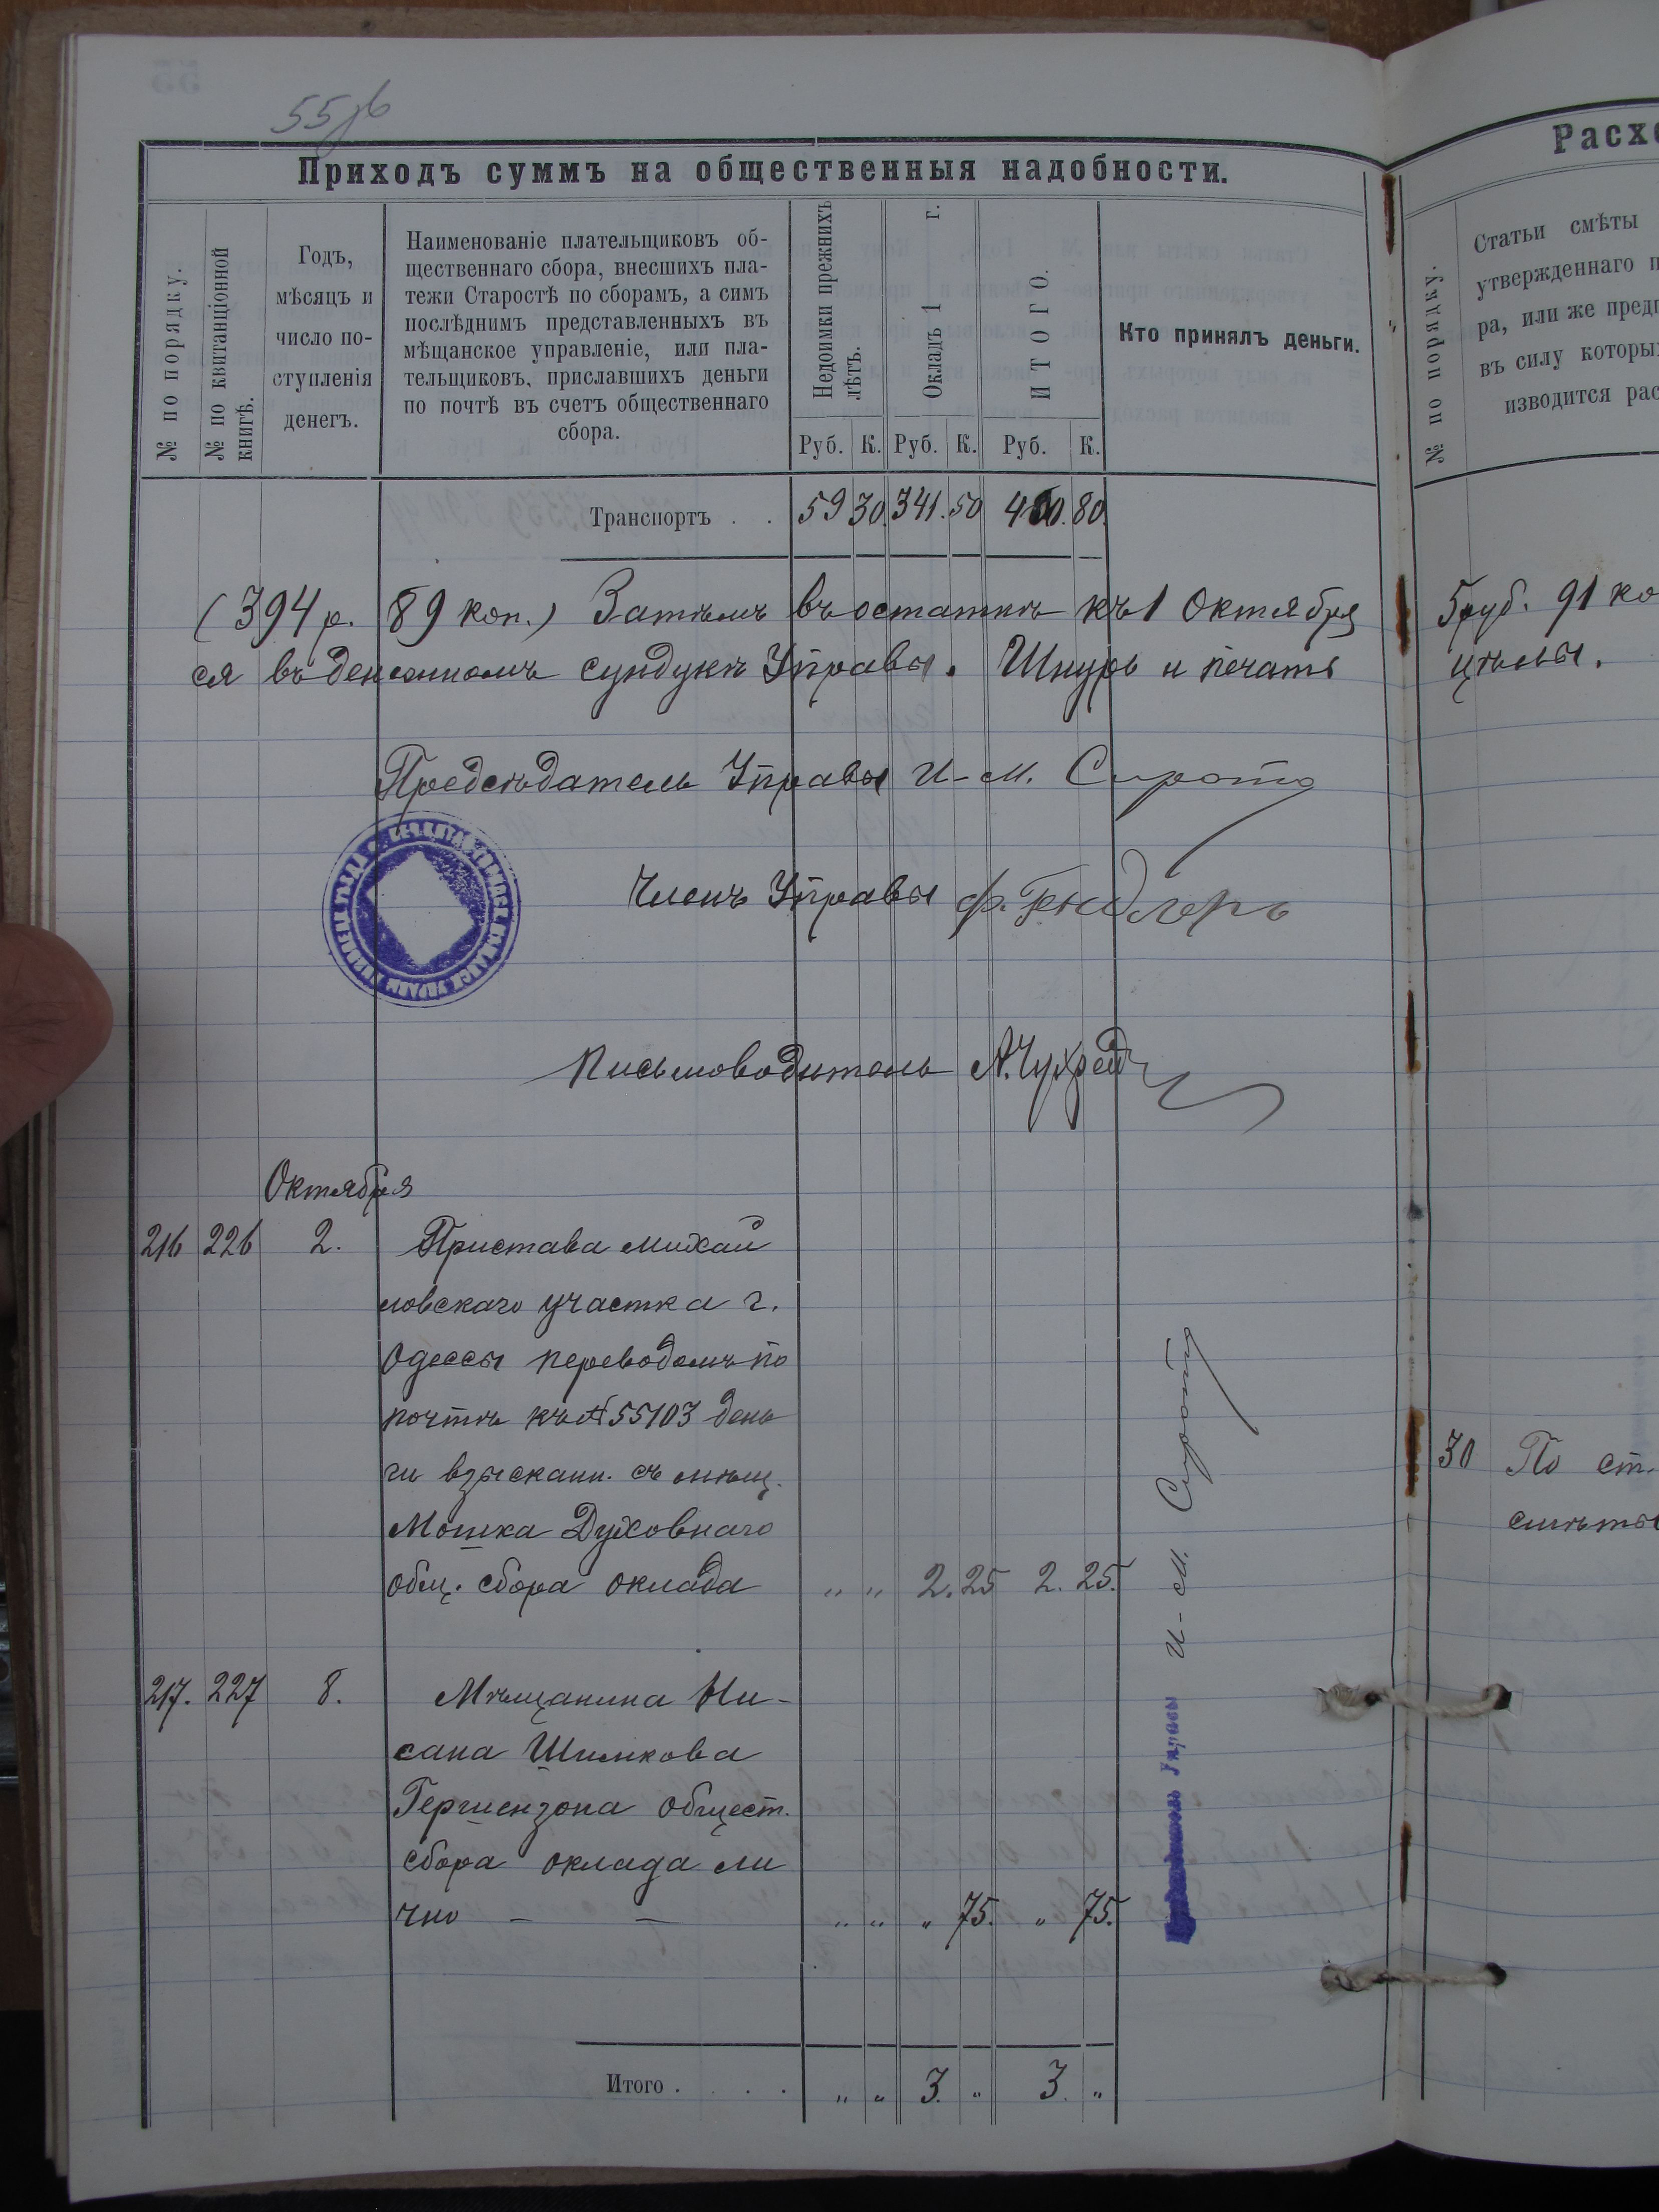 55об
Приходъ суммъ на общественныя надобности.
№ по порядку.
№ по квитанціонной
книгѣ.
Годъ,
мѣсяцъ и
число по-
ступленія
денегъ.
Наименованіе плательщиковъ об-
щественнаго сбора, внесшихъ пла-
тежи Старостѣ по сборамъ, а симъ
послѣднимъ представленныхъ въ
мѣщанское управленіе, или пла-
тельщиковъ, приславшихъ деньги
по почтѣ въ счетъ общественнаго
сбора.
Недоимки прежнихъ
лѣтъ.
Окладъ 1 г.
ИТОГО.
Кто принялъ деньги.
Руб. К. Руб. К. Руб. К.
Транспортъ . . 59 30. 341. 50 400. 80.
(394 р. 89 коп.) Затѣмъ въ остаткѣ къ 1 Октября
ся въ денежномъ сундукѣ Управы. Шнуръ и печать
Предсѣдатель Управы И-М. Сирота
Членъ Управы
Письмоводитель
Октября
216 226 2. Пристава Михай
ловскаго участка г.
Одессы переводомъ по
почтѣ къ № 55103 день
ги взыскан. съ мѣщ.
Мошка Духовнаго
общ. сбора оклада „ „ 2. 25 2. 25.
217. 227 8. Мѣщанина Ни-
сана Шимкова
Гершензона общест.
сбора оклада ли
чно — — „ „ „ 75. „ 75.
Управы И-М. Сирота
Итого . . . . „ „ 3. „ 3. „
Расхо
№ по порядку.
Статьи смѣты
утвержденнаго п
ра, или же пред
въ силу которы
изводится рас
5 руб. 91 ко
цѣлы.
30 По ст.
смѣты